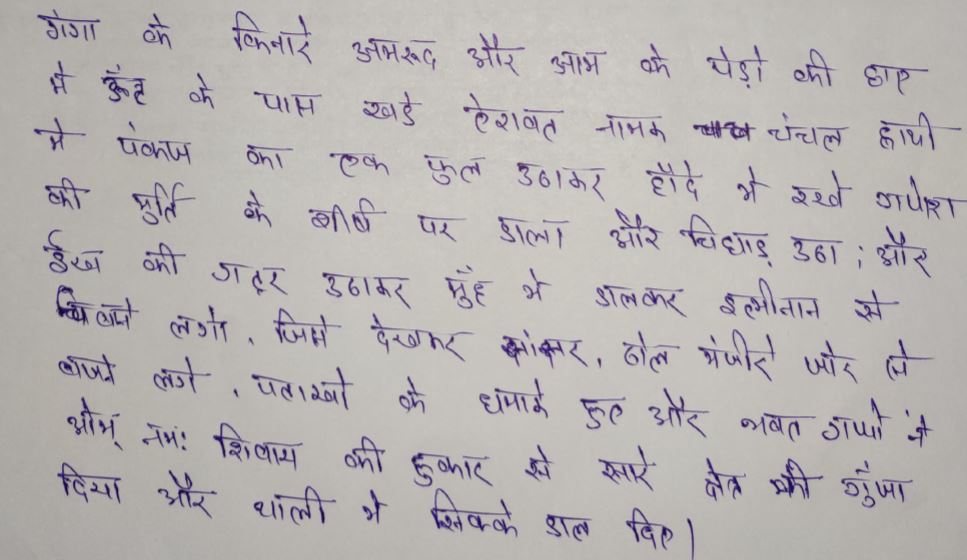 गंगा के किनारे अमरूद और आम के पेड़ो की छाए
में ऊँट के पास खडे ऐरावत नामक चंचल हाथी
ने पंकज का एक फुल उठाकर हौदे मे रखे गणेश
की मुर्ति के शीर्ष पर डाला और चिघाड़ उठा; और
ईख की गट्ठर उठाकर मुँह मे डालकर इत्मीनान से
लगो, जिसे देखकर झांझर, ढोल मंजीरे जोर से
बाजने लगे, पताखो के धमाके हुए और भक्त गणो ने
ओम् नमः शिवाय की हुकार से सारे क्षेत्र को गुँजा
दिया और थाली मे सिक्के डाल दिए।